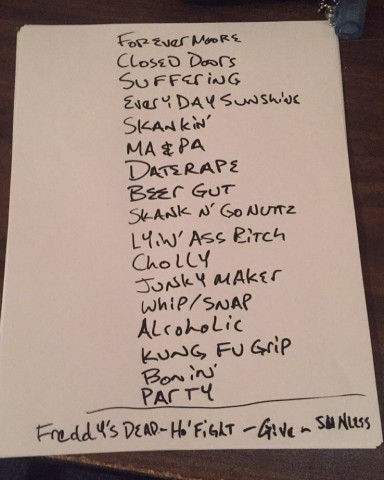 FOREVERMOORE
CLOSED DOORS
SUFFERING
EVERYDAY SUNSHINE
SKANKIN'
MA & PA
DATERAPE
BEER GUT
SKANK N' GO NUTTZ
LYIN' ASS BITCH
CHOLLY
JUNKY MAKER
WHIP/SNAP
ALCOHOLIC
KUNG FU GRIP
BONIN'
PARTY
FREDDY'S DEAD - HO' FIGHT - GIVE n